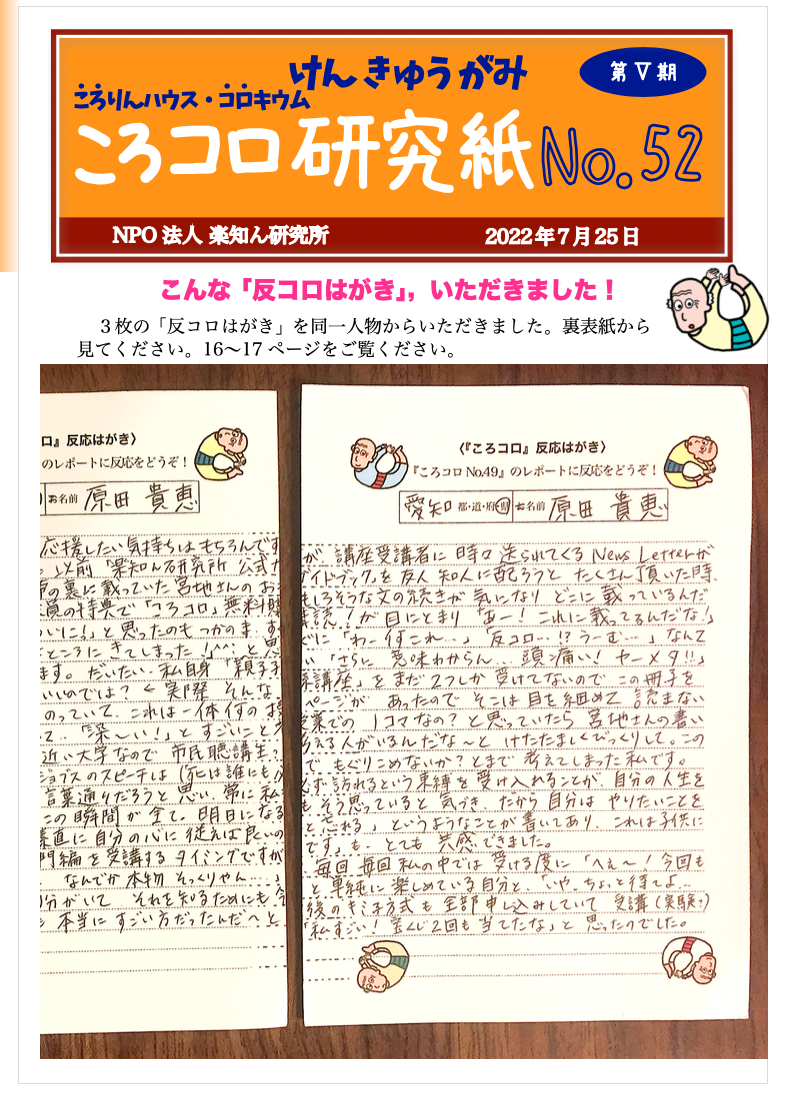 けんきゅうがみ
第Ⅴ期
ころりんハウス・コロキウム
ころコロ研究紙 No.52
NPO 法人 楽知ん研究所
2022年7月25日
こんな「反コロはがき」，いただきました！
３枚の「反コロはがき」を同一人物からいただきました。裏表紙から
見てください。16〜17 ページをご覧ください。
ロ』反応はがき〉
のレポートに反応をどうぞ！
お名前 原田 貴恵
応援したい気持ちはもちろんです
以前「楽知ん研究所 公式ガ
の裏に載っていた宮地さんのお
員の特典で「ころコロ」無料購
いに！」と思ったのもつかのま、す
ところにきてしまった！^^; と思
ます。だいたい、私自身「親子
いいのでは？ ← 実際 そんな
のっていて、これは一体何の
て、「深〜い！」とすごいこと
近い大学なので 市民聴講生？
ジョブスのスピーチは（死は誰にも
言葉通りだろうと思い、常に私
この瞬間が全て。明日になる
素直に自分の心に従えば良いの
門編を受講するタイミングですが
なんでか本物そっくりやん…」
分がいて それを知るためにも今
本当にすごい方だったんだ〜と
〈『ころコロ』反応はがき〉
『ころコロ No.49』のレポートに反応をどうぞ！
愛知 都・道・府・県 お名前 原田 貴恵
が 講座受講者に 時々 送られてくる News Letterが
イドブック』を 友人 知人に配ろうと たくさん 頂いた時、
もしろそうな文の続きが 気になり どこに 載っているんだ
購読！が 目にとまり 「あー！ これに載ってるんだな！」
ぐに 「わー何これ…」 反コロ…!? うーむ…」 なんて
い 「さらに 意味わからん… 頭痛い！ ヤーメタ!!」
講座」を まだ 2つしか 受けてないので この冊子を
ページが あったので そこは 目を 細めて 読まない
授業での 1コマなの？ と思っていたら 宮地さんの書い
考える人がいるんだな〜と けたたましくびっくりして。この
で もぐりこめないか？とまで 考えてしまった私です。
必ず訪れるという束縛を 受け入れることが、自分の人生を
もそう思っていると 気づき、だから自分は やりたいことを
と忘れる」 というようなことが書いてあり、これは子供に
です」も、とても 共感できました。
毎回 毎回 私の中では 受ける度に 「へぇ〜！今回も
と 単純に 楽しめている自分と、「いや、ちょっと待てよ…
後のキミ子方式も 全部申し込みしていて 受講（実験？）
「私すごい！ 宝くじ2回も 当てたな」と 思ったのでした。